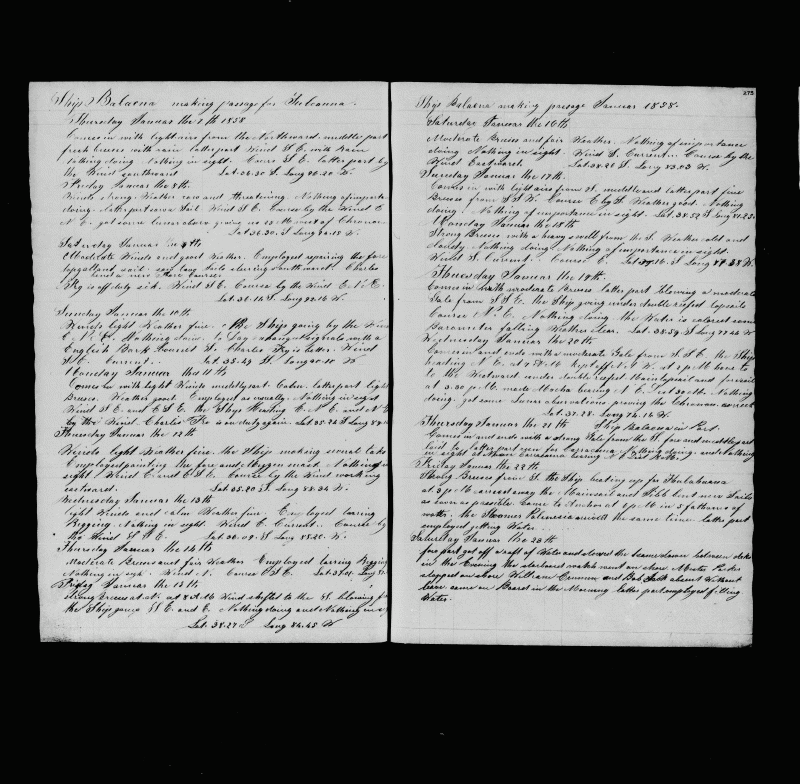 Ship Balaena making passage for
Thursday Januar the 7th 1858
Comes in with light airs from the Northward. middle part
fresh breeses with rain latter part Wind S E. with Rain
Nothing doing. Nothing in sight. Course S E. latter part by
the Wind southward Lat. 36.30 S. Long 96.20 W.
Friday Januar the 8th.
Winds strong. Weather raw and threatning. Nothing of importance
doing. latter part saw a Sail. Wind S E. Course by the Wind E
N E. got some lunars above
Lat 36.30. S. Long 94.18 W.
Saturday Januar the 9th
Moderate Winds and good Weather. Employed repairing the fore
topgallant sail. saw long Sails steering southward. Charles
Fry is off duty sick. Wind S E. Course by the Wind E. N. E.
Lat. 36.14 S. Long 92.16 W.
Sunday Januar the 10th
Winds light Weather fine. The Ship going by the Wind
E. N. E. Nothing doing. to Day exchange Signals with a
English Bark bound S. Charles Fry is better. Wind
S E. Current. Lat. 35.49 S. Long 90.10 W.
Monday Januar the 11th
Comes in with light Winds middle part Calm. latter part light
Breses. Weather good. Employed as usually. Nothing in sight
Wind S E. and E S E. the Ships Heading E. N E. and N E
by the Wind. Charles Fry is on duty again. Lat. 35.26 S. Long
Thuesday Januar the 12th
Winds light Weather fine. the Ship making several tacks
Employed painting the fore and Mizzen mast. Nothing in
sight. Wind E. and E S E. Course by the Wind working
eastward. Lat. 35.20 S. Long 88.34 W.
Wednesday Januar the 13th
light Winds and calm Weather fine. Employed tarring
Rigging. Nothing in sight. Wind E. Current. Course by
the Wind S. S E. Lat 36.09. S. Long 88.20 W.
Thursday Januar the 14th
Moderate Breses and fair Weather Employed tarring Rigging
Nothing in sight. Wind N. Course E S E. Lat 37.01. Long
Friday Januar the 15th
strong breeses at N. at 8 A.M Wind shiftet to the S. blowing fresh
the Ship going S E. and E. Nothing doing and Nothing in
Lat. 38.27 S Long 84.45 W
273
Ship Balaena making passage Januar 1858.
Saturday Januar the 16th
Moderate Breses and fair Weather. Nothing of importance
doing. Nothing in sight. Wind S. Current. Course by the
Wind Eastward. Lat. 38.26 S. Long 83.03 W.
Sunday Januar the 17th.
Comes in with light airs from S. middle and latter part fine
Breeses from S S W. Course E by S. Weather good. Nothing
doing. Nothing of importance in sight. Lat. 38.52 S Long
Monday Januar the 18th
Strong Breses with a heavy swell from the S. Weather cold and
cloudy. Nothing doing. Nothing of importance in sight.
Wind S. Current. Course E. Lat 38.16. S. Long W.
Thuesday Januar the 19th.
Comes in with moderate Breses latter part blowing a moderate
Gale from S S E. the Ship going under double reeft topsails
Course N E. Nothing doing. the Water is colored some
Barometer falling Weather clear. Lat. 38.59. S Long 77.26 W
Wednesday Januar the 20th
Comes in and ends with a moderate Gale from S. S E. the Ship
heading N E. at 7 P M. kept off N N W. at 2 P M hove to
to the Westward under double reeft Mainspisail and foresail
at 3.30 P M. made Mocha bearing N E. Dist 30 M. Nothing
doing. got some lunar observations proving the Chronom. correct
Lat. 37.28. Long 74.16 W
Thursday Januar the 21th Ship Balaena in Port.
Comes in and ends with a strong Gale from the S. fore and middle part
laid to. latter part run for Nothing doing. and nothing
in sight at Noon bearing N E Dist
Friday Januar the 22th
Strong Breses from S. the Ship beating up for Tulcahuana
at 3 P M carried away the Mainsail and Jibb bent new Sails
as soon as possible. Came to Anchor at 9 P M in 5 fathoms of
water. the Steamer arrived the same time. latter part
employed getting Water.
Saturday Januar the 23th
fore part got off a raft of Water and stowed the same down between decks
in the Evening the starboard watch went on shore Master Peder
stopped on shore William and Bob absent Without
leave came on Board in the Morning. latter part employed filling
Water.